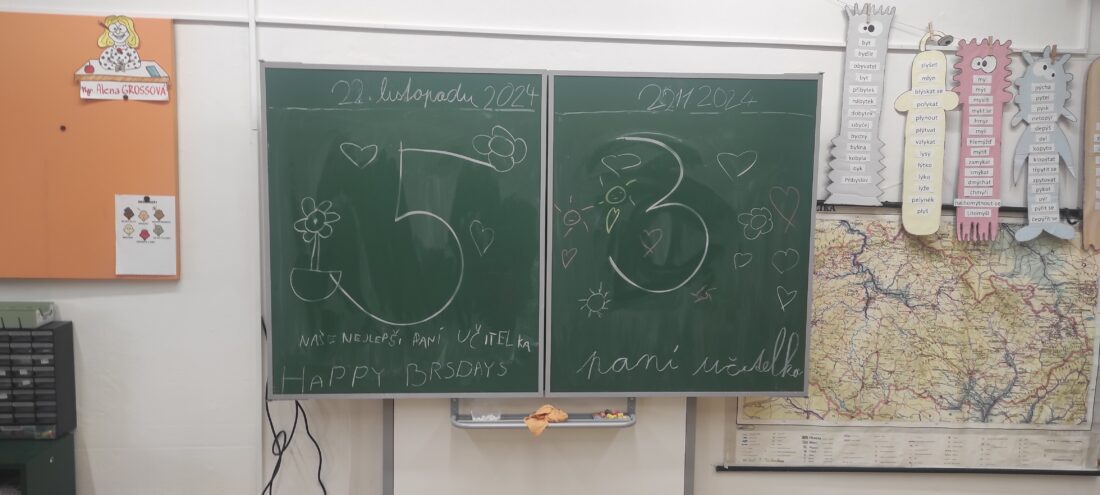 Mgr. Alena GROSSOVÁ
22. listopadu 2024
5
NAŠE NEJLEPŠÍ PANÍ UČITELKA
HAPPY BRSDAYS
22.11 2024
3
paní učitelko
být
bydlit
obyvatel
byt
příbytek
nábytek
dobytek
obyčej
bystrý
bylina
kobyla
býk
Přibyslav
slyšet
mlýn
blýskat se
polykat
plynout
plýtvat
vzlykat
lysý
lýtko
lýko
lyže
pelyněk
plyš
my
mýt
myslit
mýlit se
hmyz
myš
hlemýžď
mýtit
zamykat
smýkat
dmýchat
chmýří
nachomýtnout se
Litomyšl
pýcha
pytel
pysk
netopýr
slepýš
pyl
kopyto
klopýtat
třpytit se
zpytovat
pykat
pýr
pýřit se
čepýřit se